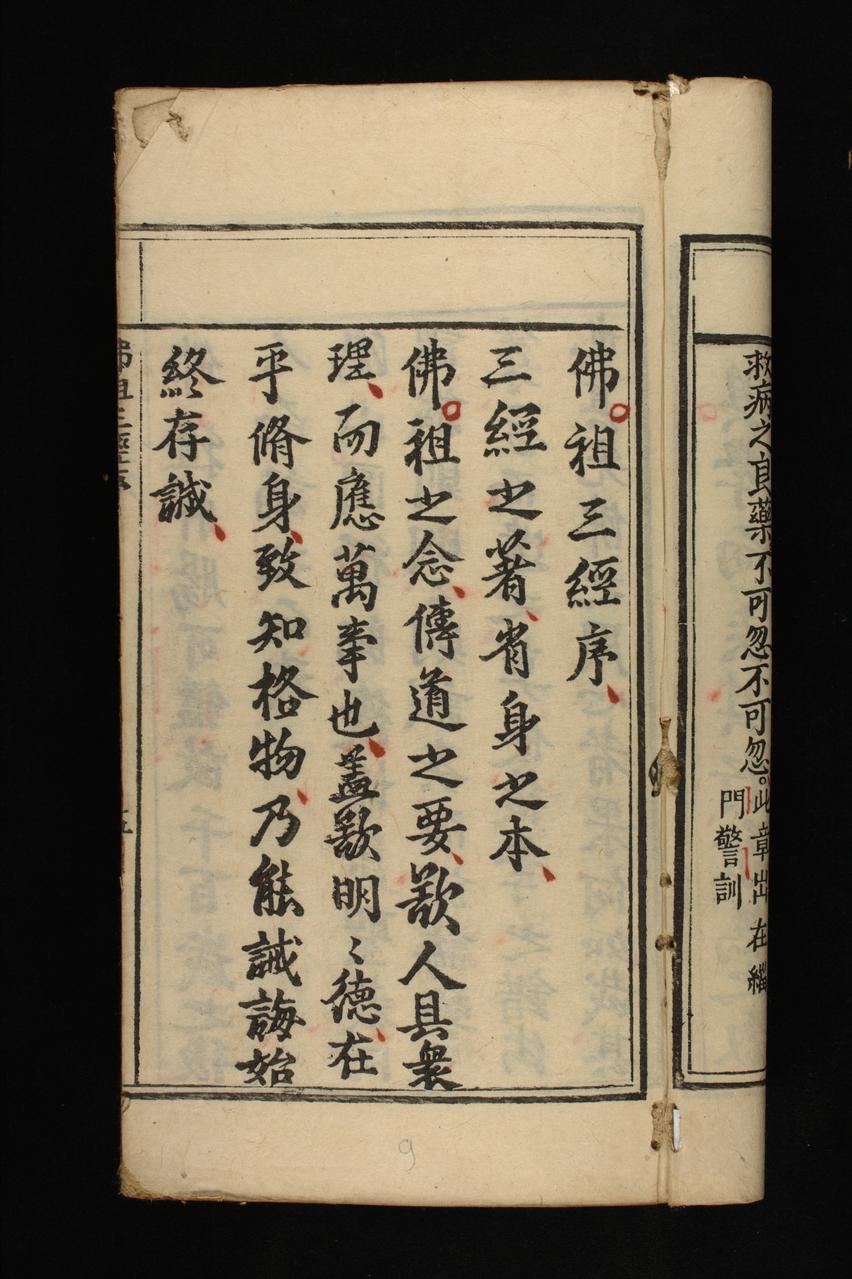 救病之良藥不可忽不可忽。此章出在緇
門警訓
佛祖三經序
三經之著省身之本
佛祖之念傳道之要欲人具衆
理而應萬事也盖欲明〻德在
乎脩身致知格物乃能誡誨始
終存誠
佛祖三經序
五
9